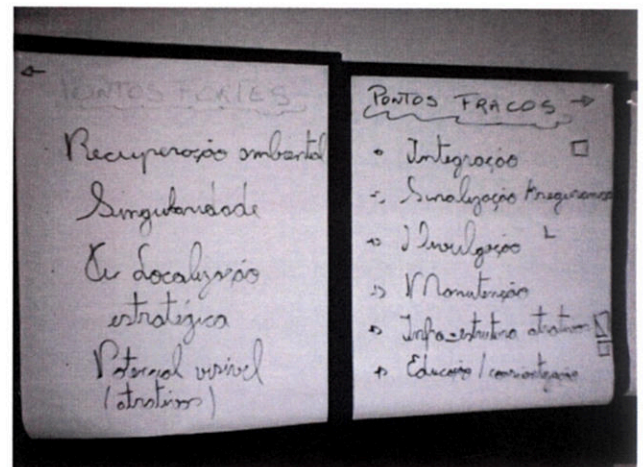 PONTOS FORTES
Recuperação ambiental
Singularidade
Localização
estratégica
Potencial visível
(atrativos)
PONTOS FRACOS →
Integração
Sinalização / segurança
Divulgação
Manutenção
Infra-estrutura atrativos
Educação / conscientização